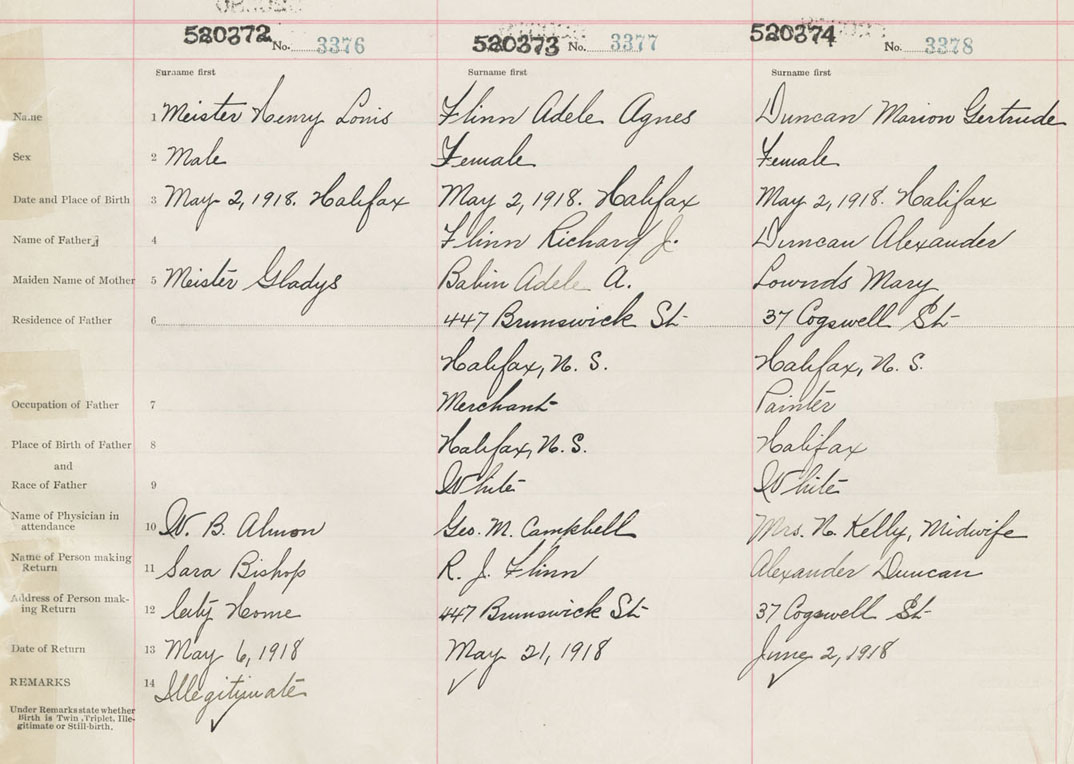 520372 No. 3376 520373 No. 3377 520374 No. 3378
Surname first Surname first Surname first
Name 1 Meister Henry Louis Flinn Adele Agnes Duncan Marion Gertrude
Sex 2 Male Female Female
Date and Place of Birth 3 May 2, 1918. Halifax May 2, 1918. Halifax May 2, 1918. Halifax
Name of Father 4 Flinn Richard J. Duncan Alexander
Maiden Name of Mother 5 Meister Gladys Babin Adele A. Lownds Mary
Residence of Father 6 447 Brunswick St 37 Cogswell St
Halifax, N. S. Halifax, N. S.
Occupation of Father 7 Merchant Painter
Place of Birth of Father 8 Halifax, N. S. Halifax
and
Race of Father 9 White White
Name of Physician in
attendance 10 W. B. Almon Geo. M. Campbell Mrs. N. Kelly, Midwife
Name of Person making
Return 11 Sara Bishop R. J. Flinn Alexander Duncan
Address of Person mak-
ing Return 12 City Home 447 Brunswick St 37 Cogswell St
Date of Return 13 May 6, 1918 May 21, 1918 June 2, 1918
REMARKS 14 Illegitimate
Under Remarks state whether
Birth is Twin, Triplet, Ille-
gitimate or Still-birth.